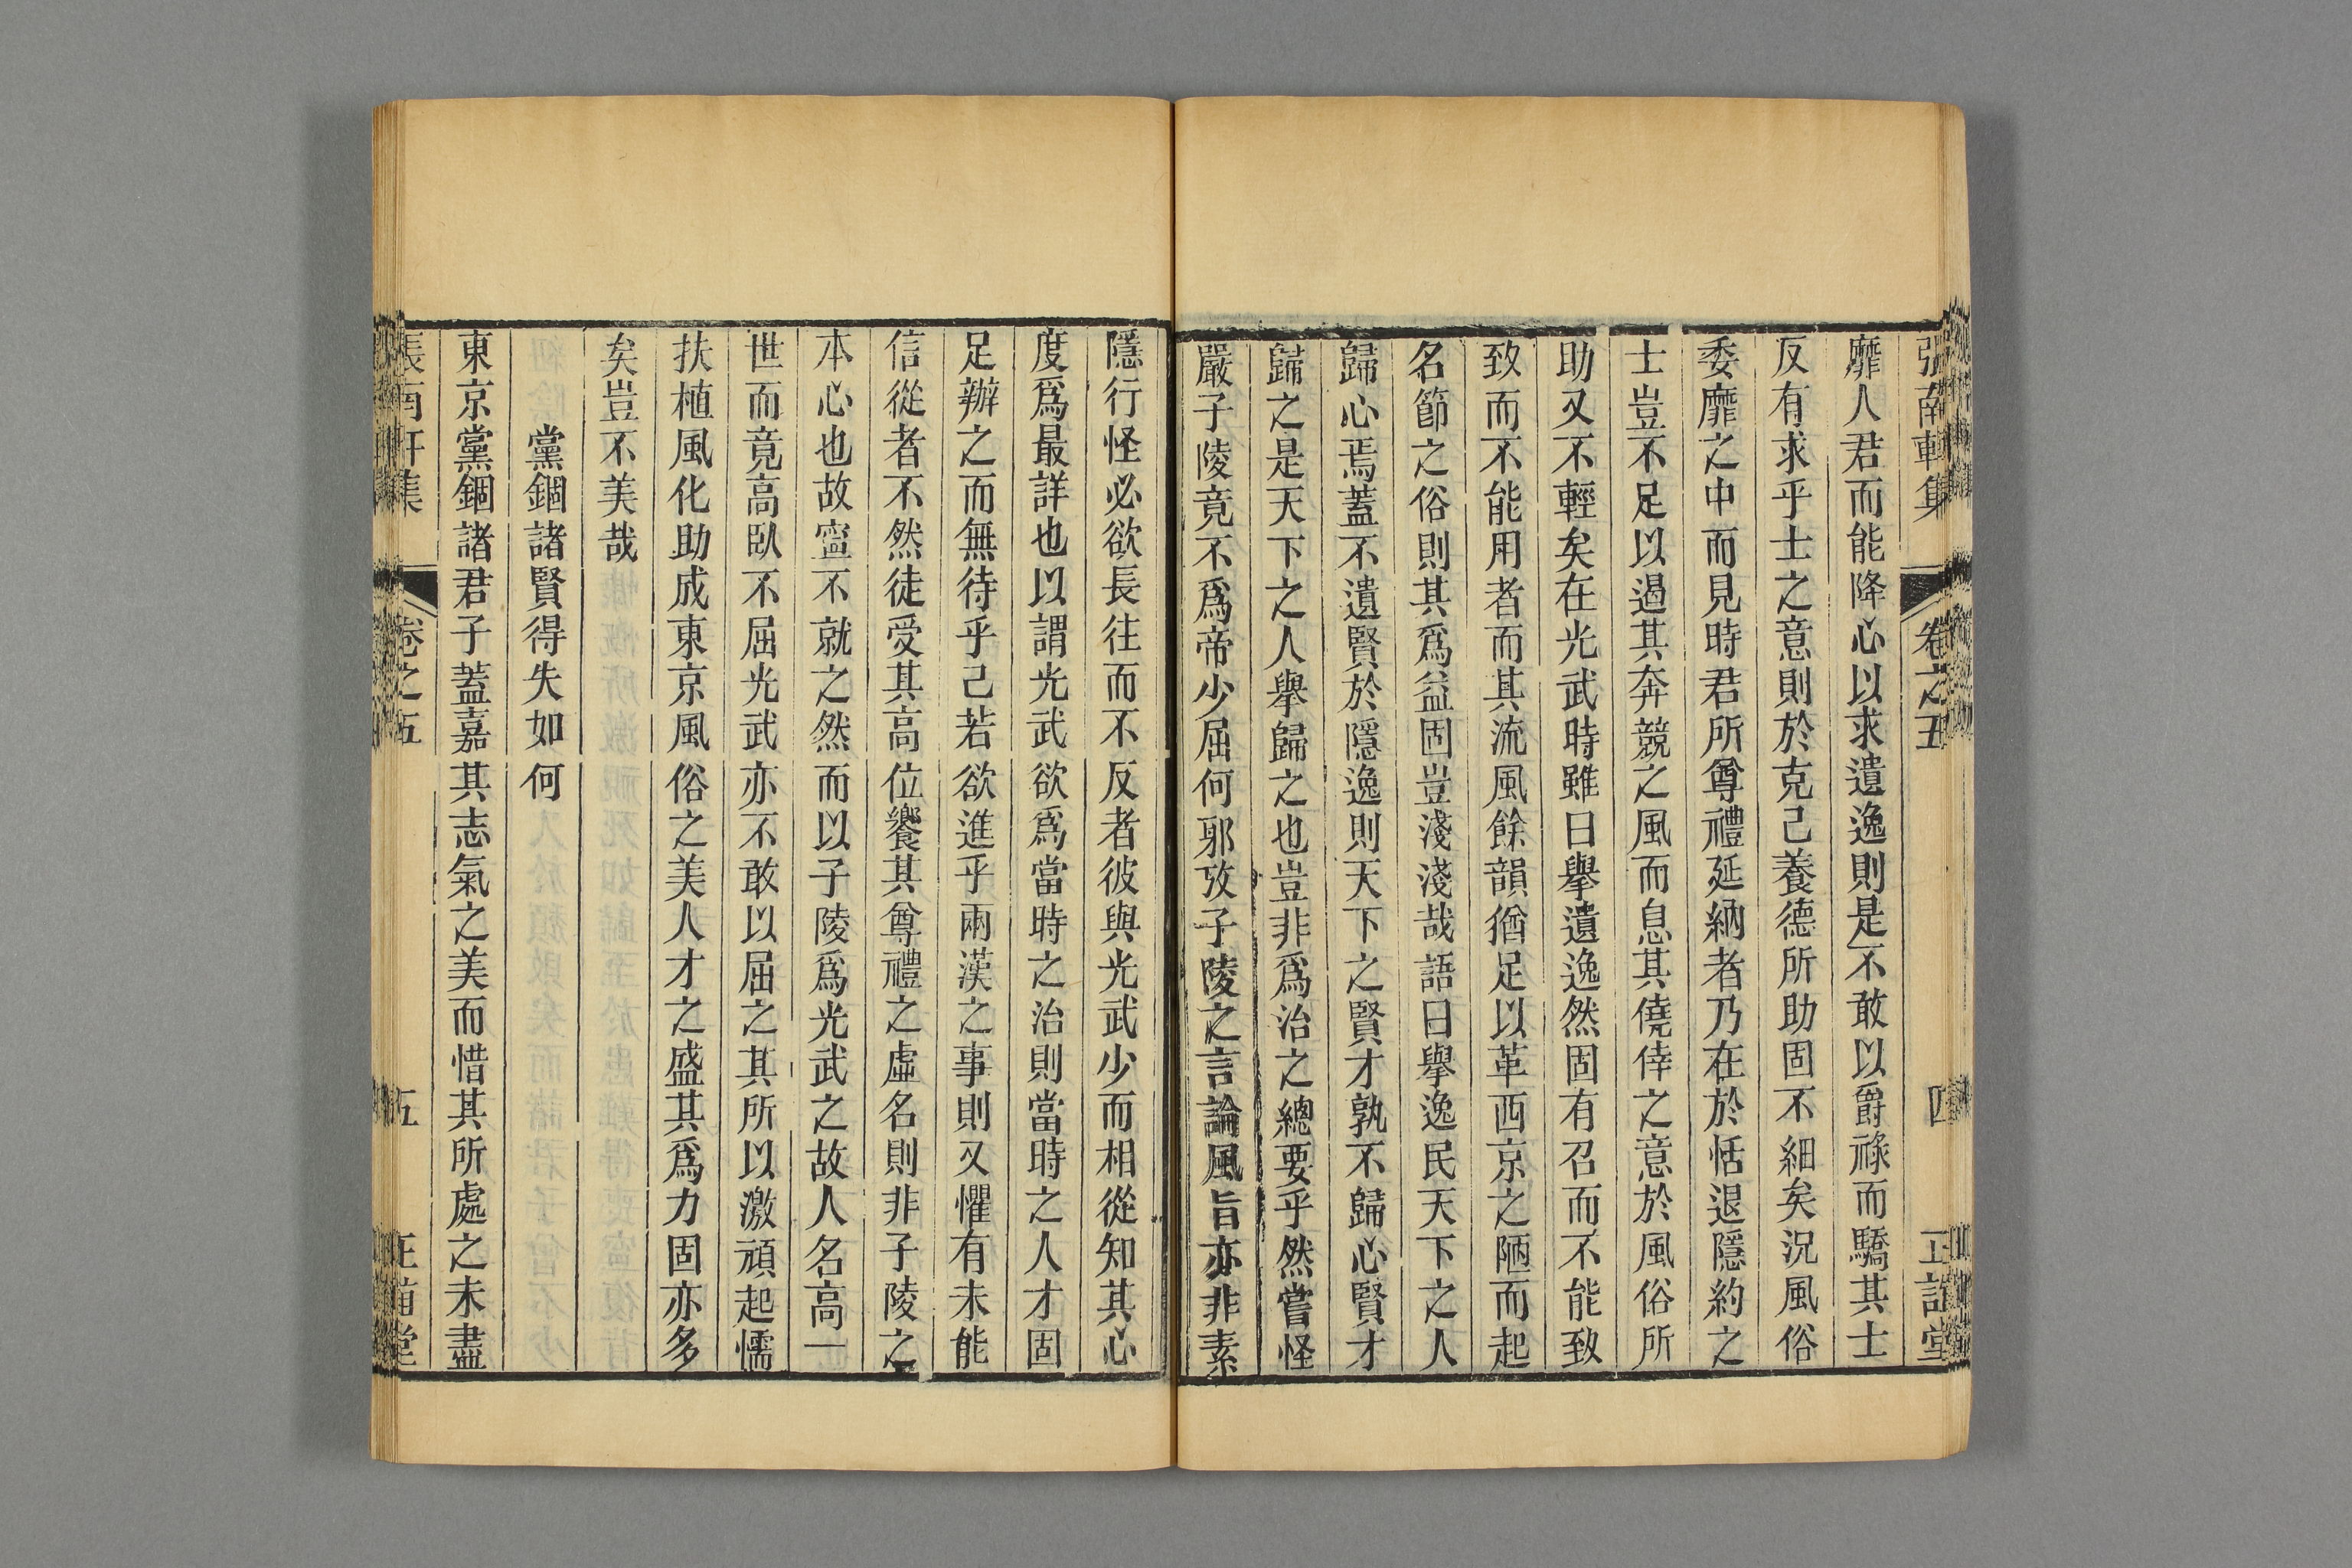 張南軒集 卷之五 四 正誼堂
靡人君而能降心以求遺逸則是不敢以爵祿而驕其士
反有求乎士之意則於克己養德所助固不細矣況風俗
委靡之中而見時君所尊禮延納者乃在於恬退隱約之
士豈不足以過其奔競之風而息其僥倖之意於風俗所
助又不輕矣在光武時雖曰舉遺逸然固有召而不能致
致而不能用者而其流風餘韻猶足以革西京之陋而起
名節之俗則其爲益固豈淺淺哉語曰舉逸民天下之人
歸心焉蓋不遺賢於隱逸則天下之賢才孰不歸心賢才
歸之是天下之人舉歸之也豈非爲治之總要乎然嘗怪
嚴子陵竟不爲帝少屈何邪攷子陵之言論風旨亦非素
隱行怪必欲長往而不反者彼與光武少而相從知其心
度爲最詳也以謂光武欲爲當時之治則當時之人才固
足辦之而無待乎己若欲進乎兩漢之事則又懼有未能
信從者不然徒受其高位饗其尊禮之虛名則非子陵之
本心也故寧不就之然而以子陵爲光武之故人名高一
世而竟高臥不屈光武亦不敢以屈之其所以激頑起懦
扶植風化助成東京風俗之美人才之盛其爲力固亦多
矣豈不美哉
黨錮諸賢得失如何
東京黨錮諸君子蓋嘉其志氣之美而惜其所處之未盡
張南軒集 卷之五 五 正誼堂